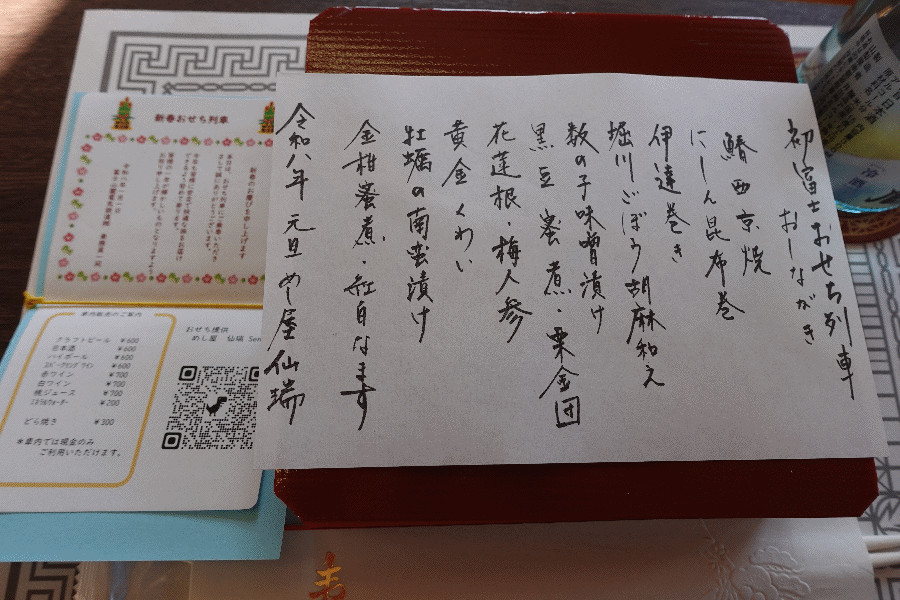 初富士おせち列車
おしながき
鰆西京焼
にしん昆布巻
伊達巻き
堀川ごぼう胡麻和え
数の子味噌漬け
黒豆蜜煮・栗金団
花蓮根・梅人参
黄金くわい
牡蠣の南蛮漬け
金柑蜜煮・紅白なます
令和八年 元旦 めし屋 仙瑞
新春おせち列車
新春のお慶びを申し上げます
令和八年一月一日
車内販売のご案内
クラフトビール ¥600
日本酒 ¥600
ハイボール ¥600
スパークリングワイン ¥600
赤ワイン ¥700
白ワイン ¥700
桃ジュース ¥700
ミネラルウォーター ¥200
どら焼き ¥300
*車内では現金のみ
ご利用いただけます。
おせち提供
めし屋 仙瑞 Sen
冷酒
寿